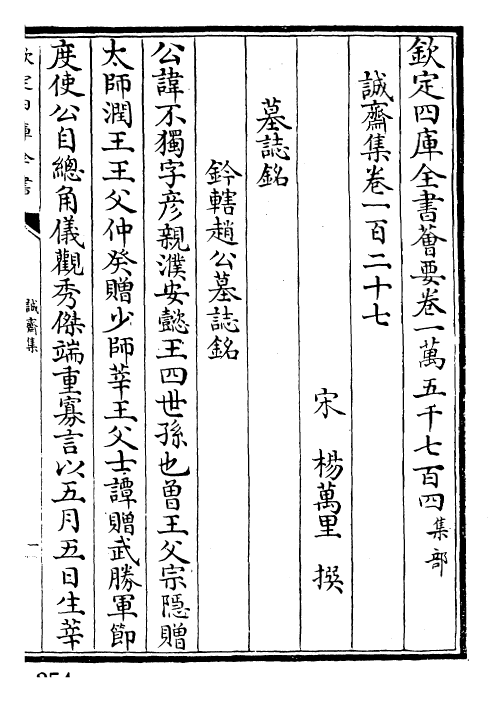 欽定四庫全書薈要卷一萬五千七百四 集部
誠齋集卷一百二十七
宋 楊萬里 撰
墓誌銘
鈐轄趙公墓誌銘
公諱不獨字彦親濮安懿王四世孫也曾王父宗隱贈
太師潤王王父仲癸贈少師莘王父士譚贈武勝軍節
度使公自總角儀觀秀傑端重寡言以五月五日生莘
欽定四庫全書
誠齋集
一